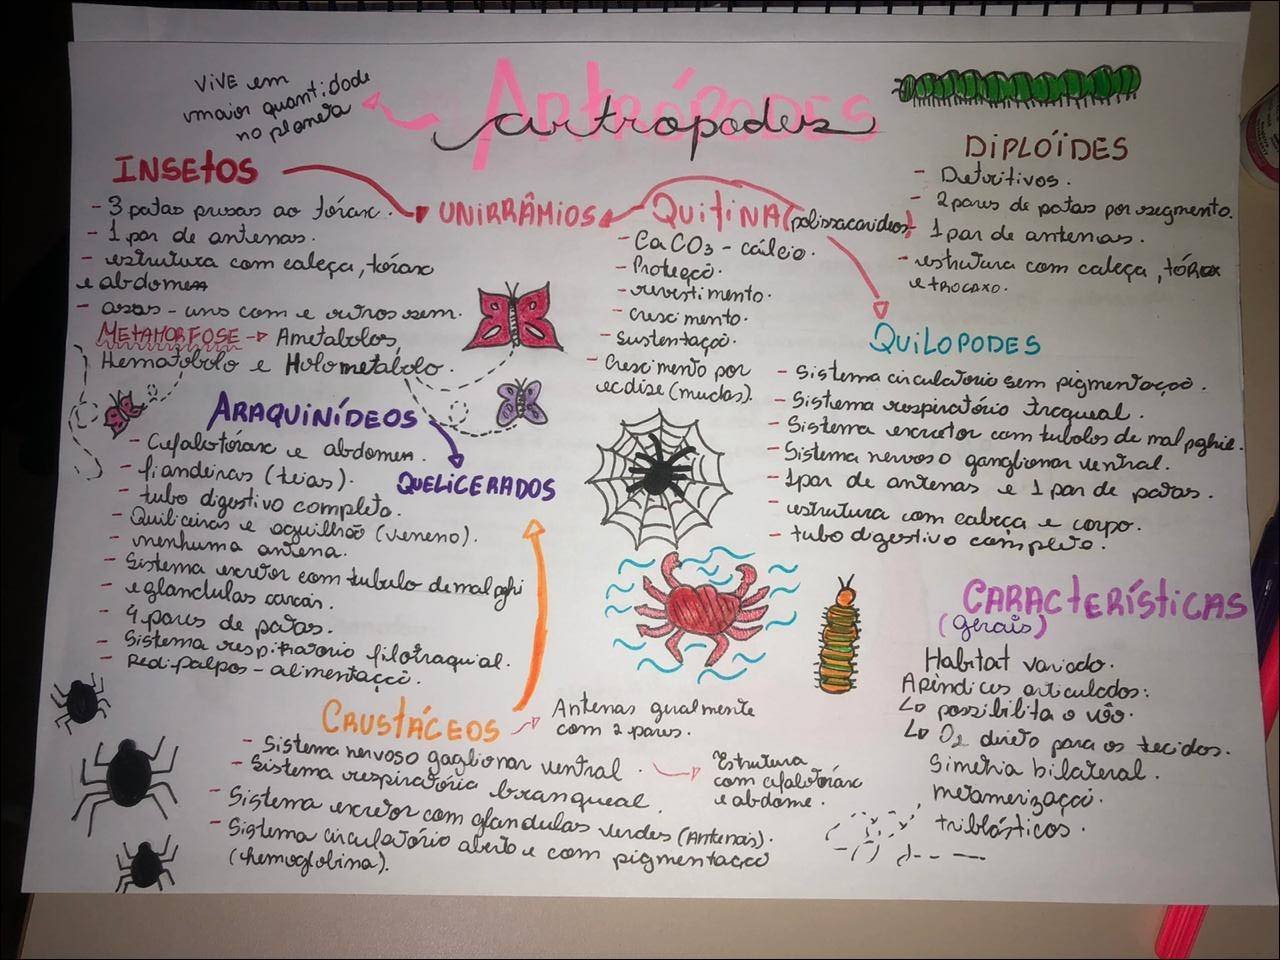 ViVE em
maior quantidade
no planeta
ARTRÓPODES
artropodes
INSETOS
- 3 patas presas ao tórax.
- 1 par de antenas.
- estrutura com cabeça, tórax
e abdomen
- asas - uns com e outros sem.
METAMORFOSE -> Ametabolos,
Hematobolo e Holometabolo.
UNIRRÂMIOS
QUITINA (polissacarideos)
- CaCO3 - cálcio.
- Proteção.
- revestimento.
- crescimento.
- sustentação.
- Crescimento por
ecdise (mudas).
DIPLÓIDES
- Detritivos.
- 2 pares de patas por segmento.
- 1 par de antenas.
- estrutura com cabeça, tórax
e trocaxo.
QUILOPODES
- Sistema circulatorio sem pigmentação.
- Sistema respiratório traqueal.
- Sistema excretor com tubolos de malpghie.
- Sistema nervoso ganglionar ventral.
- 1 par de antenas e 1 par de patas.
- estrutura com cabeça e corpo.
- tubo digestivo completo.
ARAQUINÍDEOS
- Cefalotórax e abdomen.
- fiandeiras (teias).
- tubo digestivo completo.
- Quiliceiras e aguilhão (veneno).
- nenhuma antena.
- Sistema excretor com tubulo de malpghi
e glandulas coxais.
- 4 pares de patas.
- Sistema respiratorio filotraquial.
- Pedi-palpos - alimentação.
QUELICERADOS
CRUSTÁCEOS
-> Antenas geralmente
com 2 pares.
- Sistema nervoso gaglionar ventral.
-> Estrutura
com cefalotórax
e abdome.
- Sistema respiratório branqueal.
- Sistema excretor com glandulas verdes (Antenais).
- Sistema circulatório aberto e com pigmentação
(hemoglobina).
CARACTERÍSTICAS
(gerais)
Habitat variado.
Apêndices articulados:
↳ possibilita o vôo.
↳ O2 direto para os tecidos.
Simetria bilateral.
metamerização.
triblásticos.